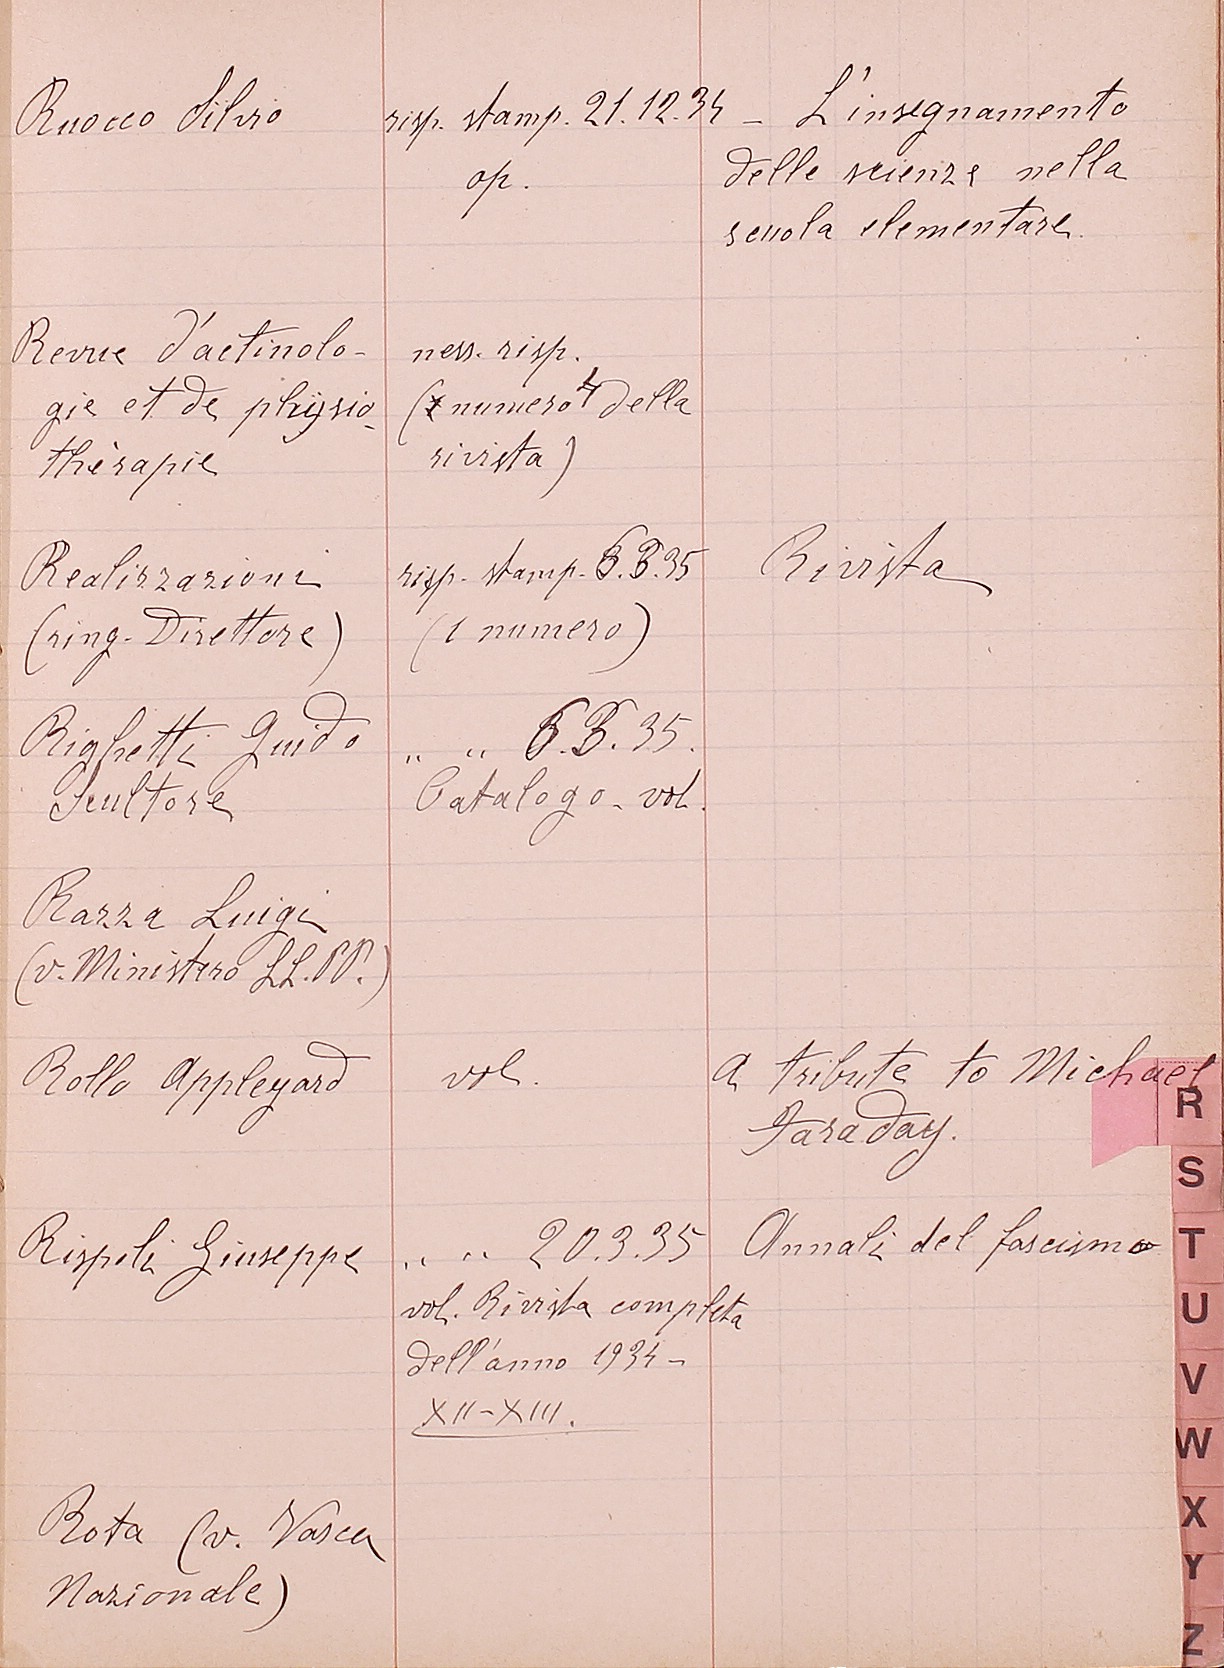 Ruocco Silvio risp. stamp. 21.12.34 – L'insegnamento
op. delle scienze nella
scuola elementare.
Revue d'actinolo- ness. risp.
gie et de physio- ( numero 4 della
thèrapie rivista)
Realizzazioni risp. stamp. 6.3.35 Rivista
(ring. Direttore) (1 numero)
Righetti Guido " " 6.3.35.
Scultore Catalogo - vol.
Razza Luigi
(v. Ministero LL.PP.)
Rollo Appleyard vol. A tribute to Michael
Faraday.
Rispoli Giuseppe " " 20.3.35 Annali del fascismo
vol. Rivista completa
dell'anno 1934 –
XII-XIII.
Rota (v. Vasca
Nazionale)
R
S
T
U
V
W
X
Y
Z